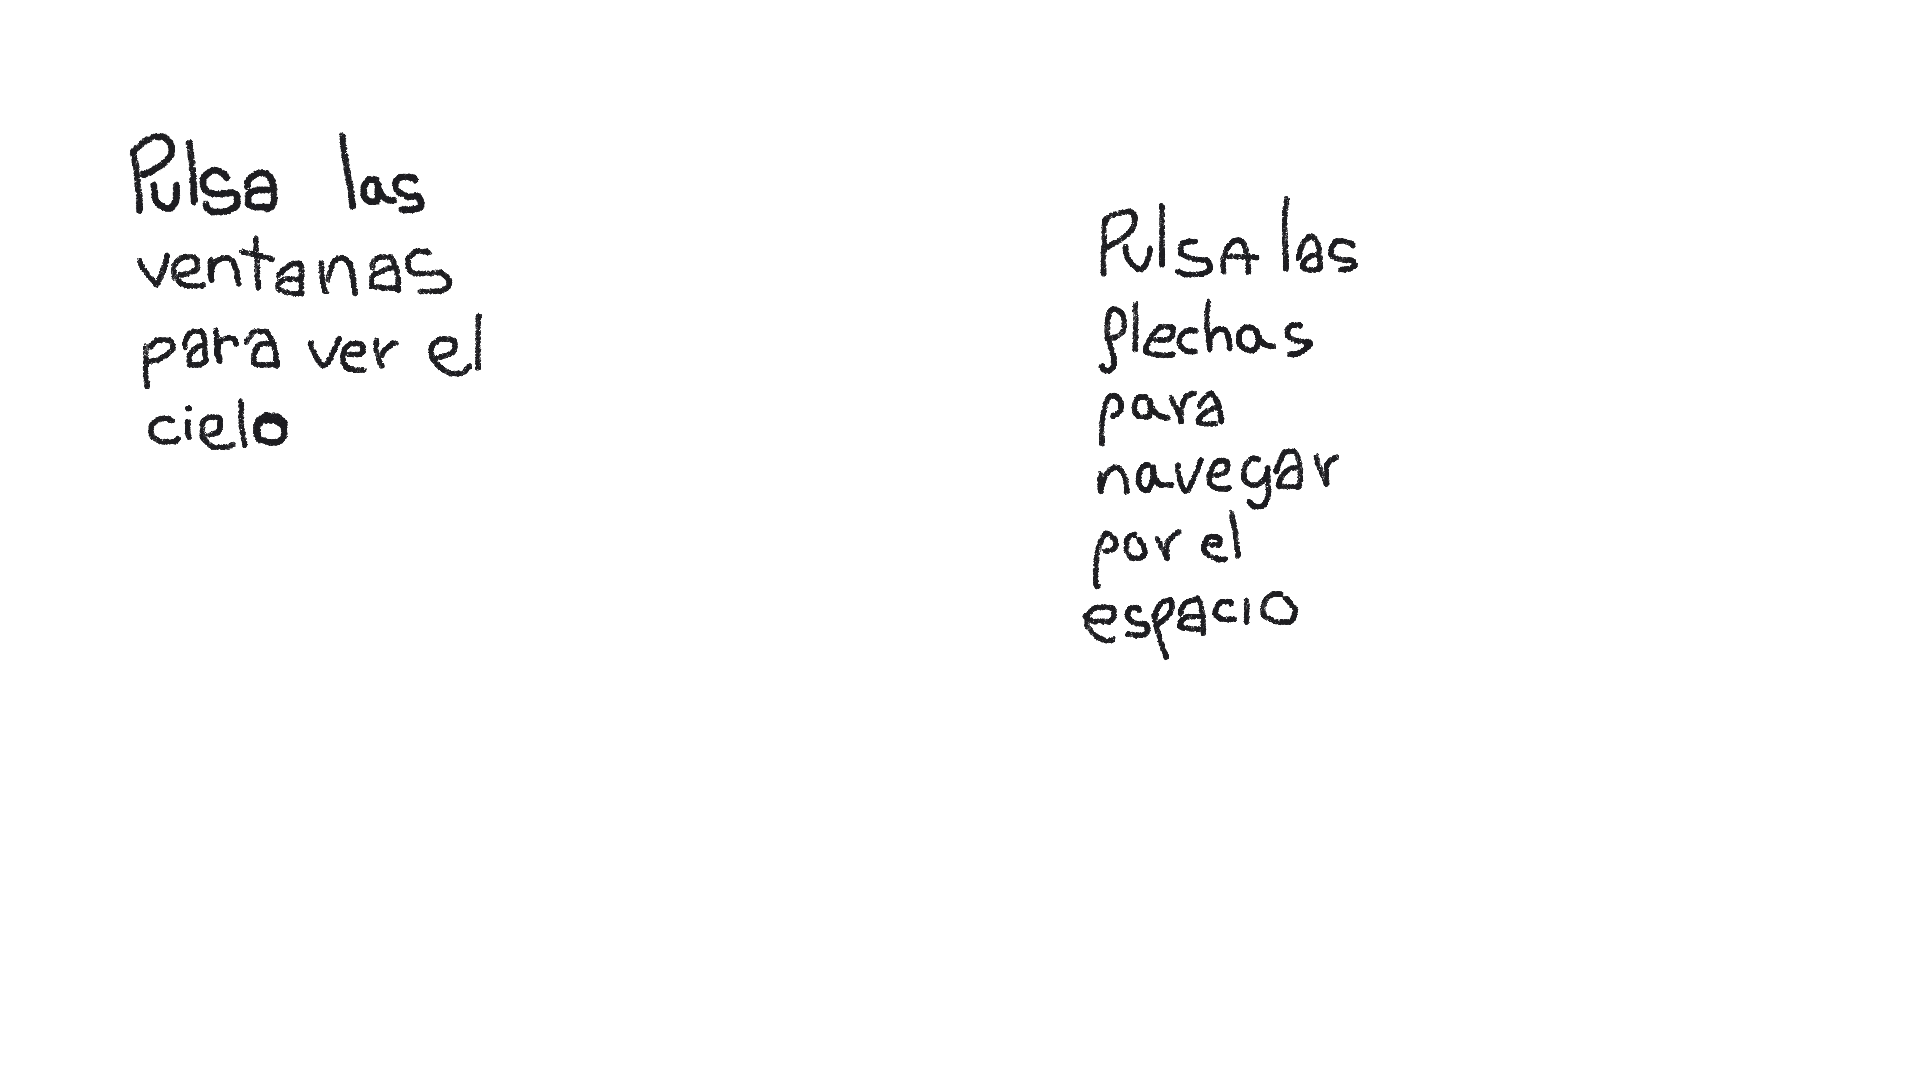 Pulsa las
ventanas
para ver el
cielo
Pulsa las
flechas
para
navegar
por el
espacio